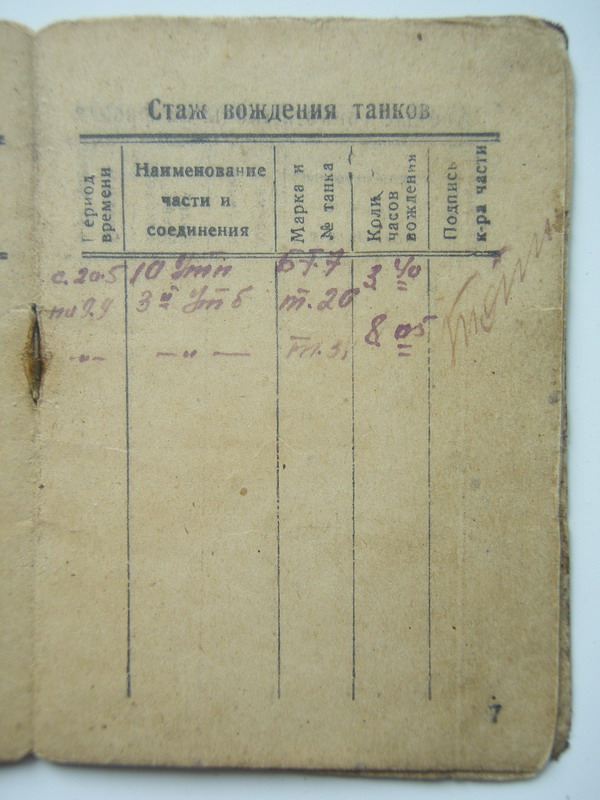 Стаж вождения танков
Период времени
Наименование части и соединения
Марка и № танка
Колич. часов вождения
Подпись к-ра части
с. 20.5 10 Утп БТ-7 3 40
по 9.9 3й Утб т. 20
—„— —„— 8 05
7